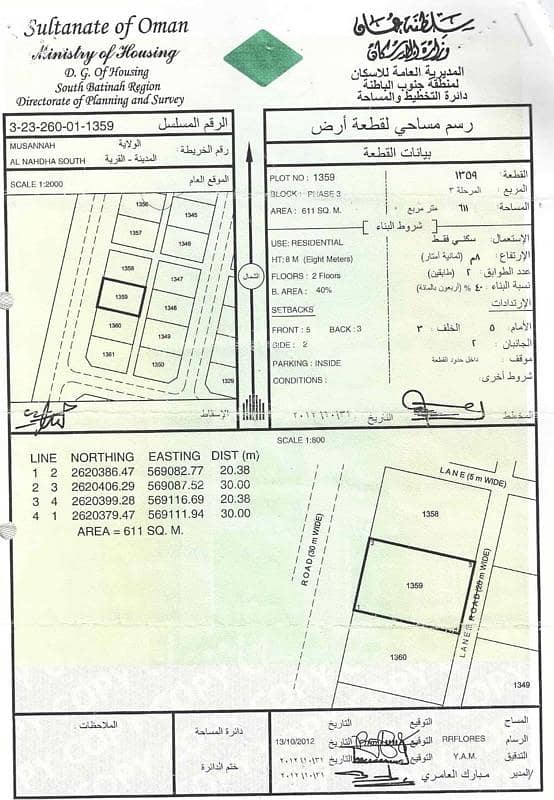 Sultanate of Oman
Ministry of Housing
D. G. Of Housing
South Batinah Region
Directorate of Planning and Survey
سلطنة عمان
وزارة الإسكان
المديرية العامة للاسكان
لمنطقة جنوب الباطنة
دائرة التخطيط والمساحة
3-23-260-01-1359 الرقم المسلسل
MUSANNAH الولاية
رقم الخريطة:
AL NAHDHA SOUTH المدينة - القرية
SCALE 1:2000 الموقع العام
1356
1345
1357
1346
1358
1347
1359
1348
1360
1349
1361
1350
1329
الإسقاط
الشمال
رسم مساحي لقطعة أرض
بيانات القطعة
PLOT NO : 1359
القطعة: ١٣٥٩
BLOCK : PHASE 3
المربع: المرحلة ٣
AREA : 611 SQ. M.
المساحة: ٦١١ متر مربع
شروط البناء
USE: RESIDENTIAL
الإستعمال: سكني فقط
HT: 8 M (Eight Meters)
الإرتفاع: ٨م (ثمانية أمتار)
FLOORS : 2 Floors
عدد الطوابق: ٢ (طابقين)
B. AREA : 40%
نسبة البناء: ٤٠ % (أربعون بالمائة)
SETBACKS
الإرتدادات
FRONT : 5 BACK : 3
الأمام: ٥ الخلف: ٣
SIDE : 2
الجانبان: ٢
PARKING : INSIDE
موقف: داخل حدود القطعة
CONDITIONS :
شروط أخرى:
المخطط
التاريخ
SCALE 1:800
LINE NORTHING EASTING DIST (m)
1 2 2620386.47 569082.77 20.38
2 3 2620406.29 569087.52 30.00
3 4 2620399.28 569116.69 20.38
4 1 2620379.47 569111.94 30.00
AREA = 611 SQ. M.
LANE (5 m WIDE)
1358
ROAD (30 m WIDE)
2
3
1359
1
4
LANE ROAD (20 m WIDE)
1360
1349
الملاحظات :
دائرة المساحة
ختم الدائرة
التاريخ التوقيع المساح
13/10/2012 التاريخ التوقيع RRFLORES الرسام
التاريخ التوقيع Y.A.M. التدقيق
التاريخ التوقيع مبارك العامري المدير